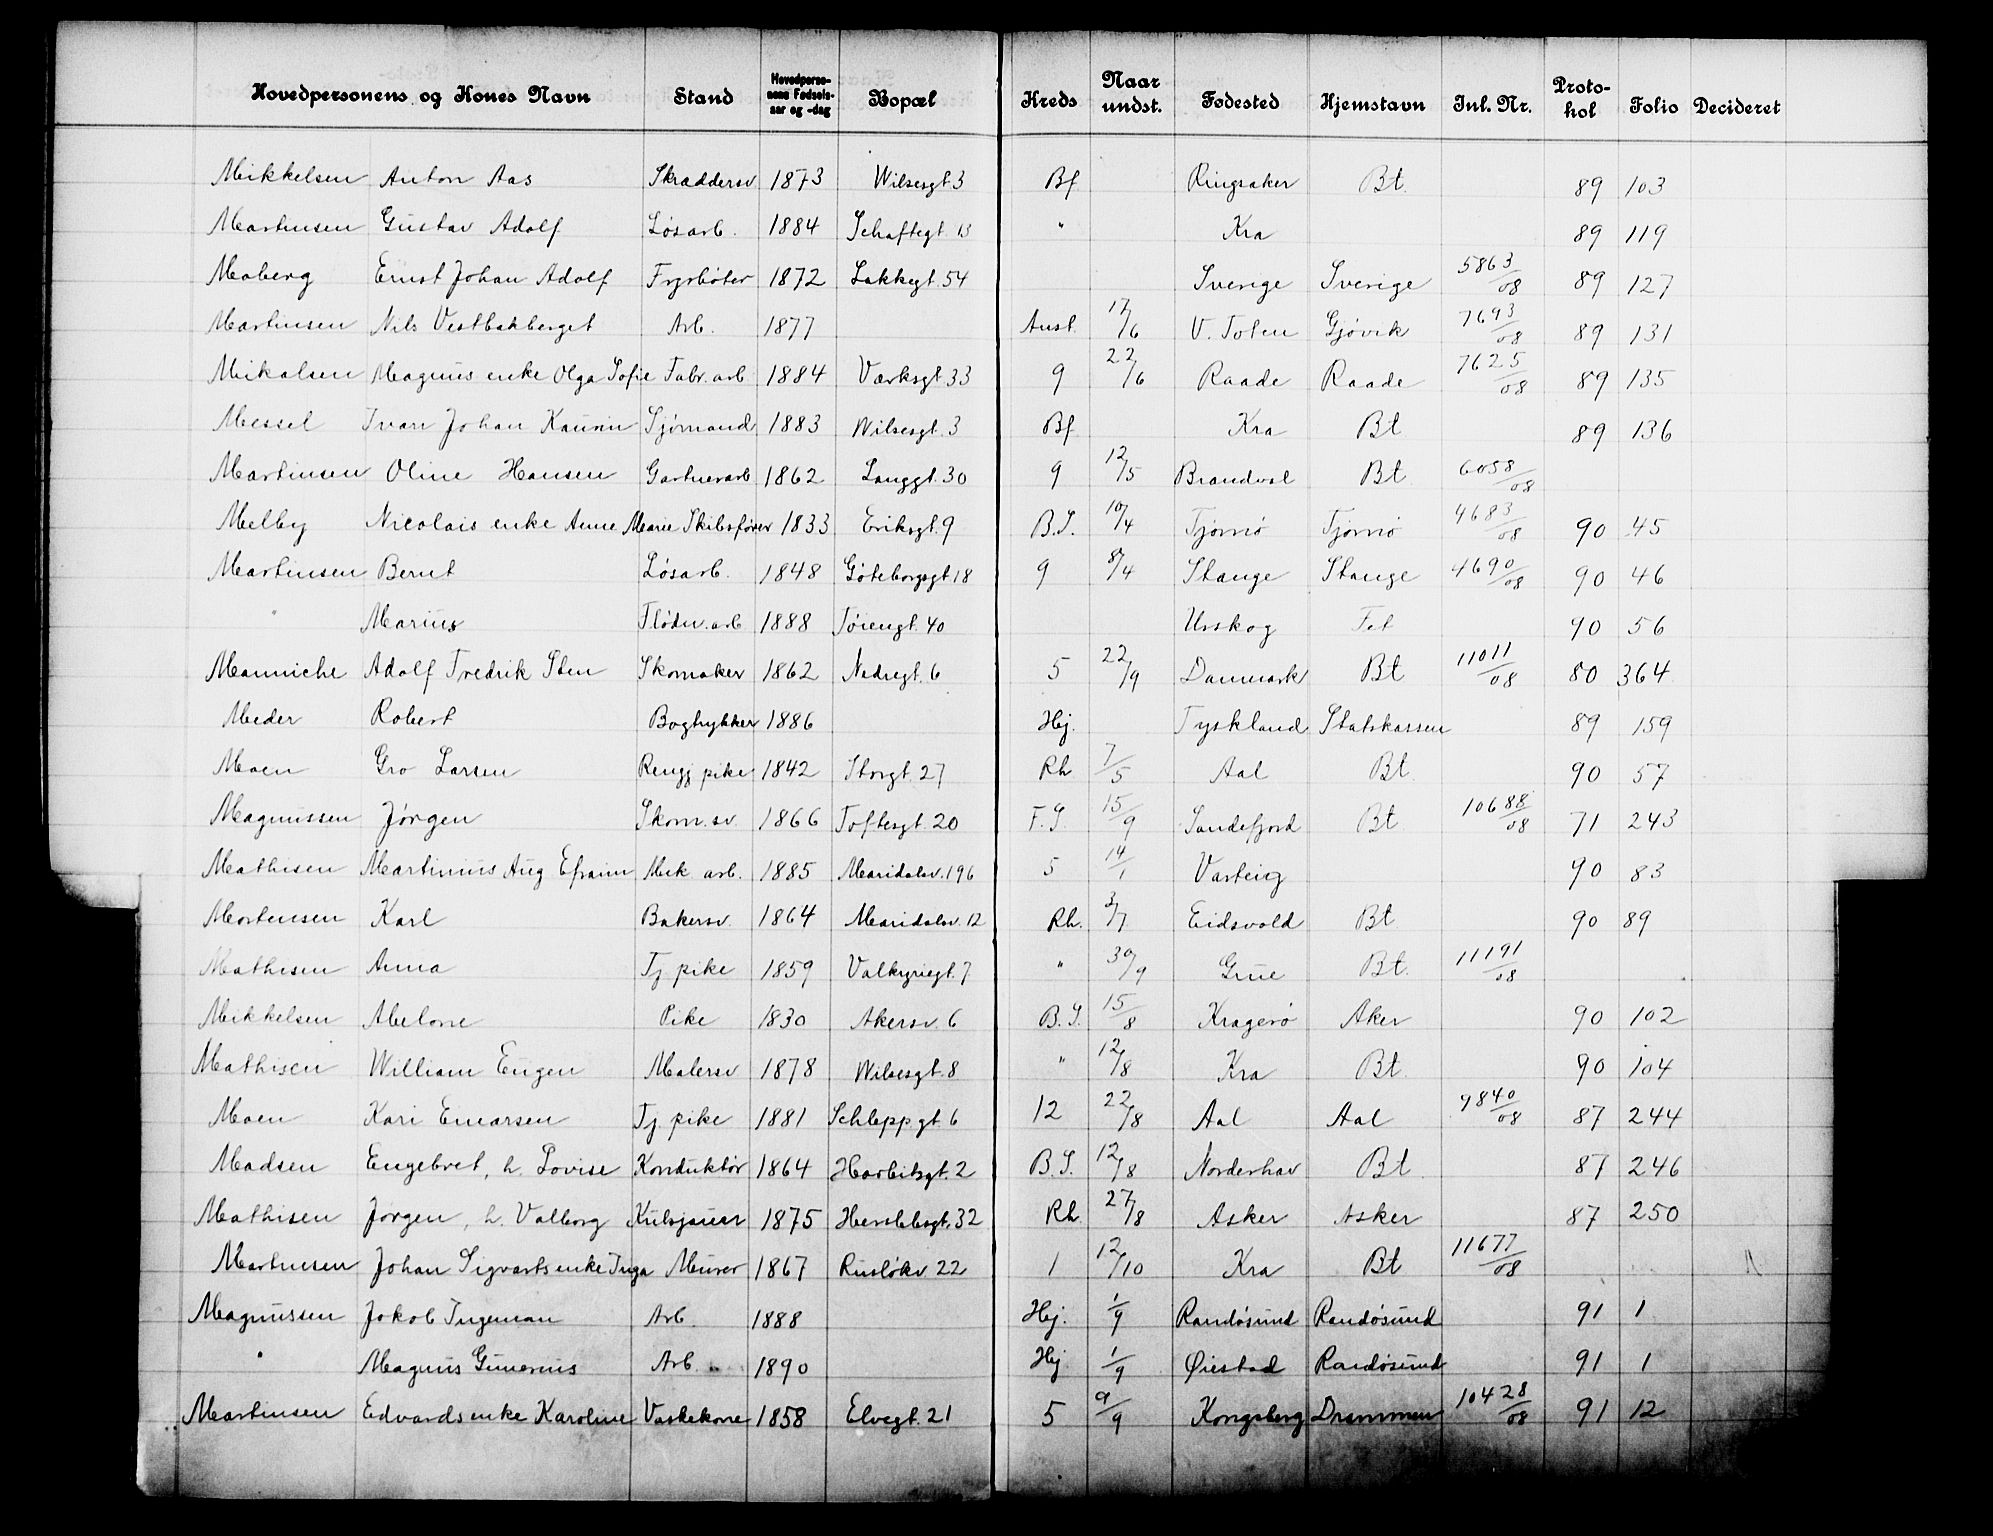 Hovedpersonens og Kones Navn Stand Hovedpersonens Fødselsaar og -dag Bopæl Kreds Naar undst. Fødested Hjemstavn Inl. Nr. Protokol Folio Decideret
Mikkelsen Anton Aas Skræddersv 1873 Wilsesgt 3 Bf Ringsaker Bt. 89 103
Martinsen Gustav Adolf Løsarb. 1884 Schaftegt 13 " Kra 89 119
Moberg Ernst Johan Adolf Fyrbøter 1872 Lakkegt 54 Sverige Sverige 5863/08 89 127
Martinsen Nils Vestbakberget Arb. 1877 Anst. 17/6 V. Toten Gjøvik 7693/08 89 131
Mikalsen Magnus enke Olga Sofie Fabr. arb 1884 Værksgt 33 9 22/6 Raade Raade 7625/08 89 135
Messel Ivan Johan Sjømand 1883 Wilsesgt. 3 Bf Kra Bt 89 136
Martinsen Oline Hansen Gartnerarb 1862 Langgt. 30 9 12/5 Brandval Bt 6058/08
Melby Nicolais enke Anne Marie Skibsfører 1833 Eriksgt. 9 B.S. 10/4 Tjømø Tjømø 4683/08 90 45
Martinsen Bernt Løsarb. 1848 Göteborgsgt 18 9 8/4 Stange Stange 4690/08 90 46
" Marius Flødn. arb 1888 Tøiengt. 40 Urskog Fet 90 56
Manniche Adolf Fredrik Sten Skomaker 1862 Nedregt. 6 5 22/9 Danmark Bt 11011/08 80 364
Meder Robert Bogtrykker 1886 Hej. Tyskland Statskassen 89 159
Moen Gro Larsen Rengj pike 1842 Storgt. 27 Rh 7/5 Aal Bt. 90 57
Magnussen Jörgen Skom. sv 1866 Toftesgt. 20 F.S. 15/9 Sandefjord Bt 10688/08 71 243
Mathisen Martinius Aug Efraim Mek arb. 1885 Maridalsv. 196 5 14/1 Varteig 90 83
Mortensen Karl Bakersv. 1864 Maridalsv. 12 Rh. 3/7 Eidsvold Bt 90 89
Mathisen Anna Tj. pike 1859 Valkyriegt. 7 " 30/9 Grue Bt. 11191/08
Mikkelsen Abelone Pike 1830 Akersv. 6 B.S. 15/8 Kragerö Aker 90 102
Mathisen William Eugen Malersv 1878 Wilsesgt. 8 " 12/8 Kra Bt. 90 104
Moen Kari Einarsen Tj. pike 1881 Schleppgt 6 12 22/8 Aal Aal 9840/08 87 244
Madsen Engebret, h. Lovise Konduktør 1864 Harbitzgt. 2 B.S. 12/8 Norderhov Bt 87 246
Mathisen Jørgen, h. Valborg Kulsjauer 1875 Herslebsgt. 32 Rh. 27/8 Asker Asker 87 250
Martinsen Johan Sigvarts enke Inga Murer 1867 Rusløkv 22 1 12/10 Kra Bt 11677/08
Magnussen Jakob Ingeman Arb. 1888 Hej. 1/9 Randøsund Randøsund 91 1
" Magnus Gunerius Arb. 1890 Hej 1/9 Øiestad Randøsund 91 1
Martinsen Edvards enke Karoline Vaskekone 1858 Elvegt. 21 5 9/9 Kongsberg Drammen 10428/08 91 12